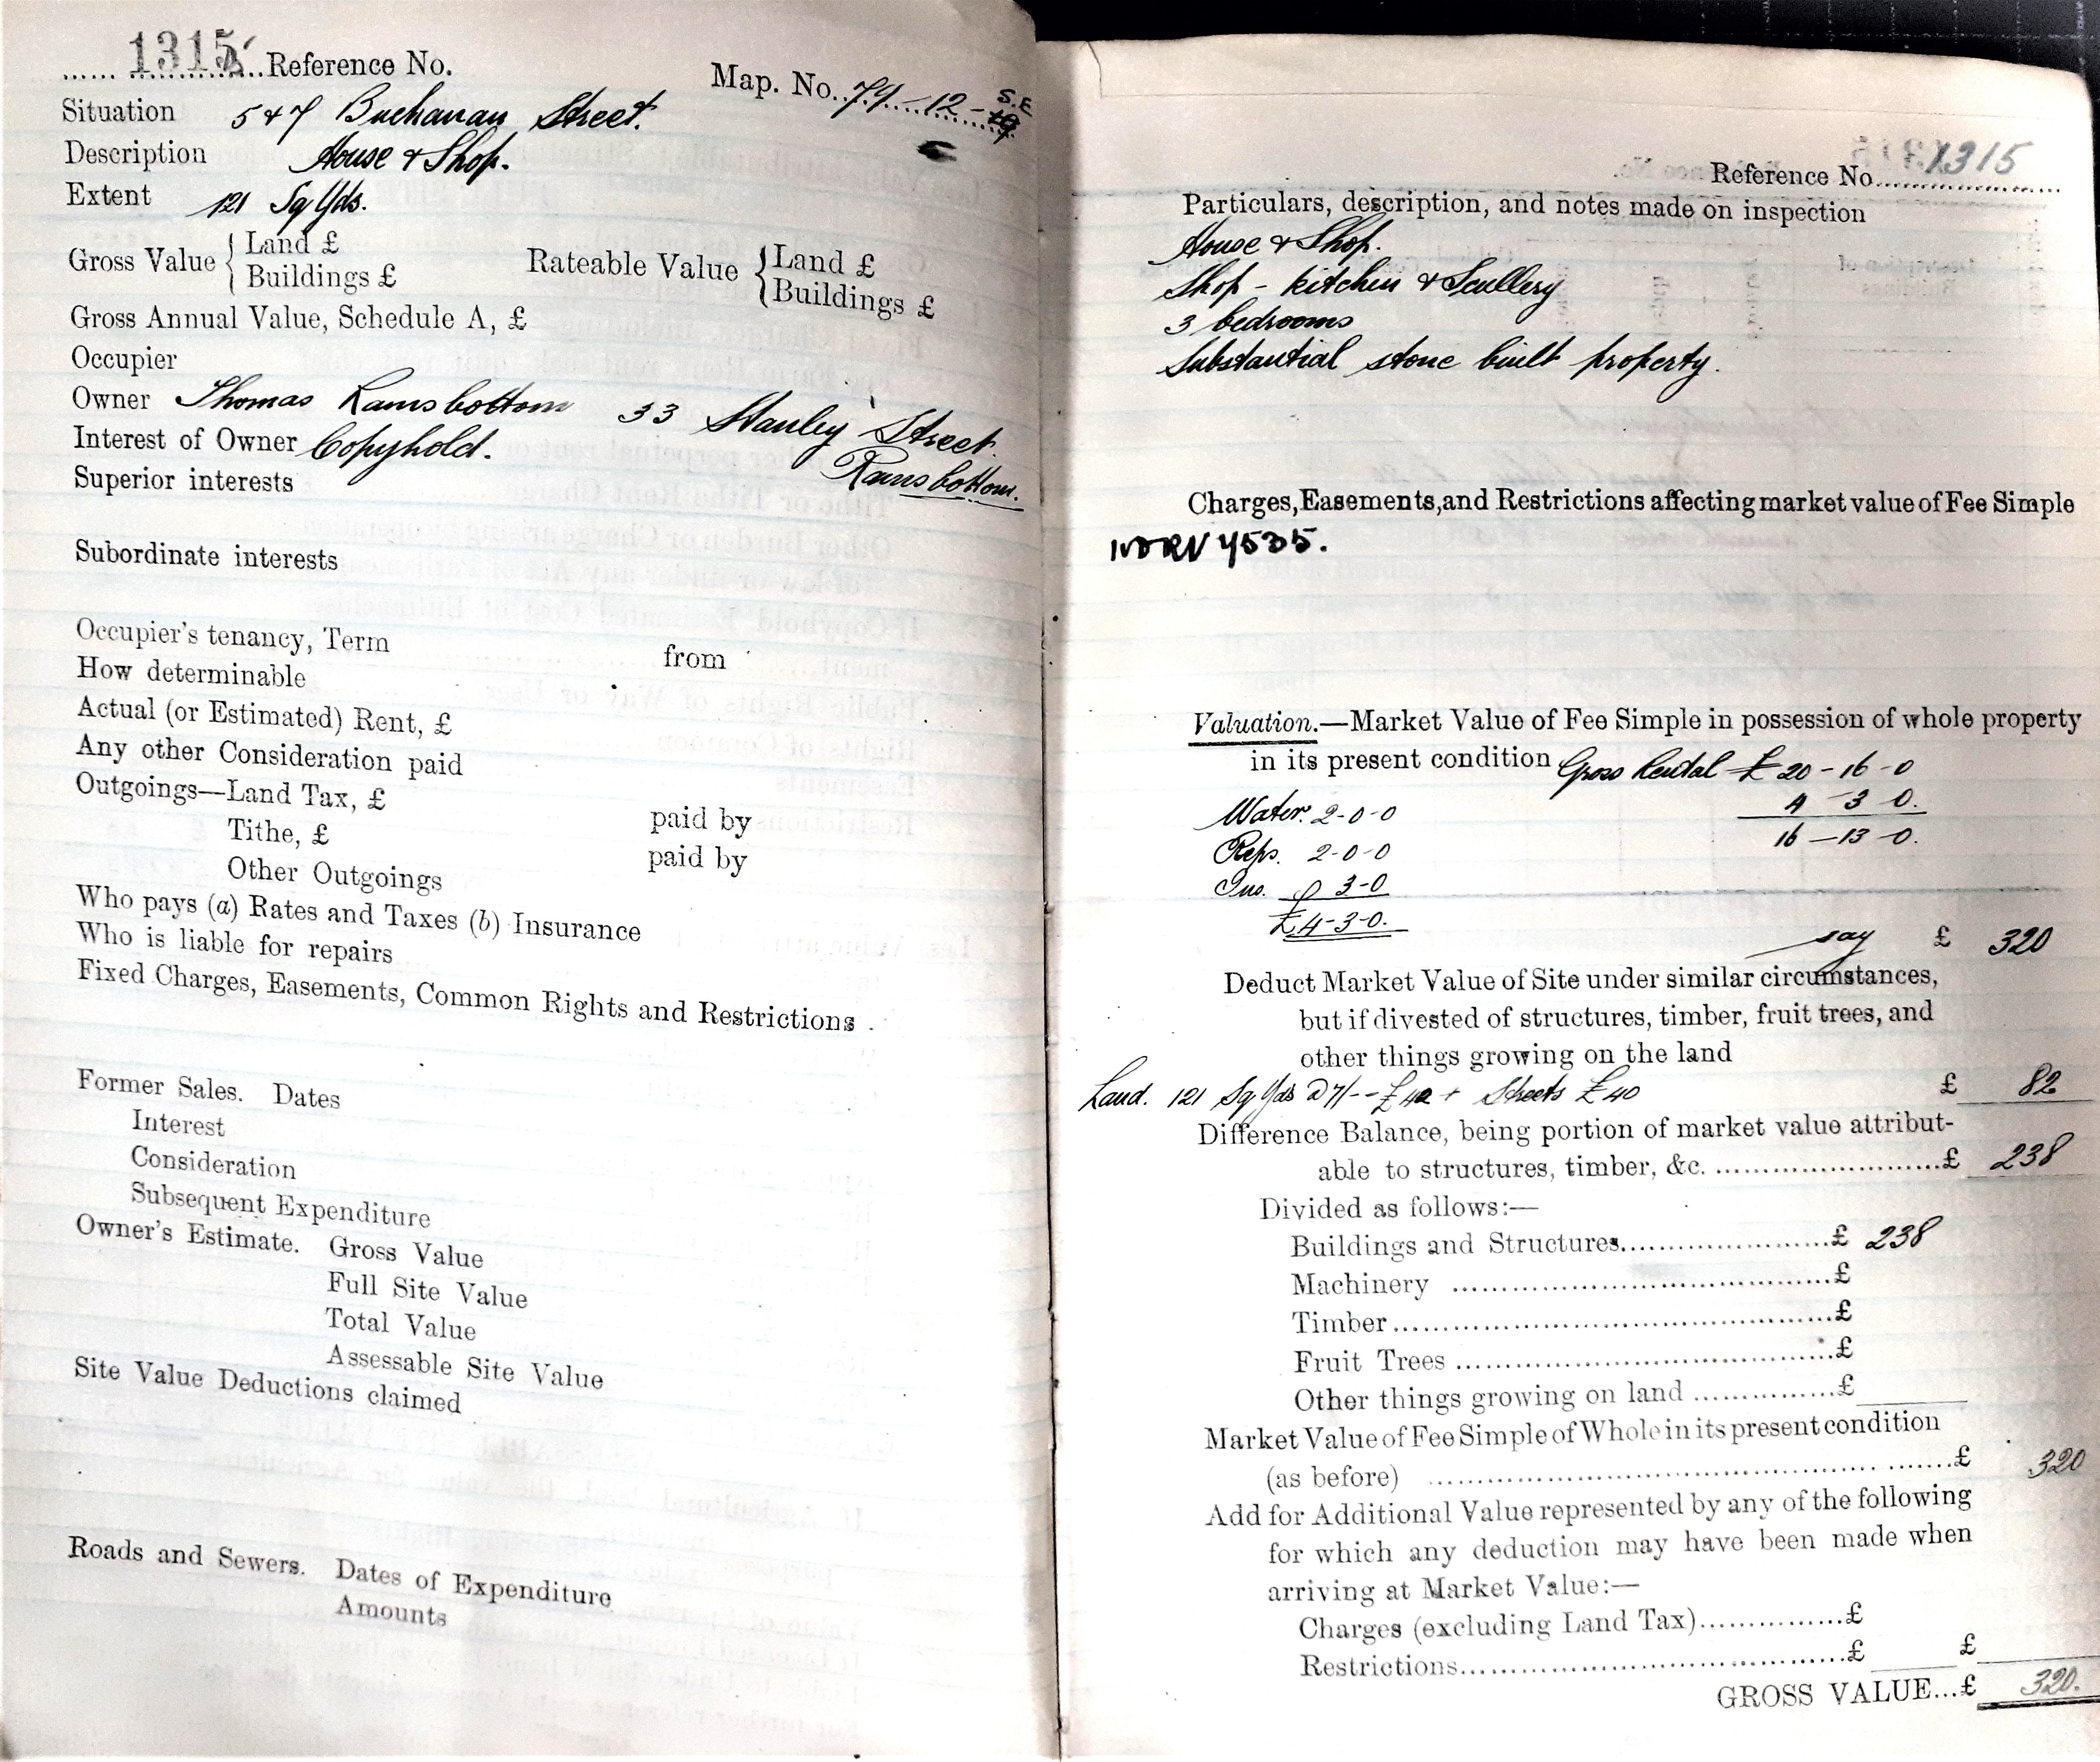 1315 Reference No. Map. No. 79-12-S.E
Situation 5 & 7 Buchanan Street.
Description House & Shop.
Extent 121 Sq Yds.
Gross Value { Land £ Rateable Value { Land £
Buildings £ Buildings £
Gross Annual Value, Schedule A, £
Occupier
Owner Thomas Ramsbottom 33 Stanley Street.
Interest of Owner Copyhold. Ramsbottom.
Superior interests
Subordinate interests
Occupier's tenancy, Term from
How determinable
Actual (or Estimated) Rent, £
Any other Consideration paid
Outgoings—Land Tax, £ paid by
Tithe, £ paid by
Other Outgoings
Who pays (a) Rates and Taxes (b) Insurance
Who is liable for repairs
Fixed Charges, Easements, Common Rights and Restrictions
Former Sales. Dates
Interest
Consideration
Subsequent Expenditure
Owner's Estimate. Gross Value
Full Site Value
Total Value
Assessable Site Value
Site Value Deductions claimed
Roads and Sewers. Dates of Expenditure
Amounts
Reference No. 1315
Particulars, description, and notes made on inspection
House & Shop.
Shop - kitchen & Scullery
3 bedrooms
Substantial stone built property.
Charges, Easements, and Restrictions affecting market value of Fee Simple
Valuation.—Market Value of Fee Simple in possession of whole property
in its present condition Gross Rental £ 20-16-0
Water. 2-0-0 4-3-0.
Reps. 2-0-0 16-13-0.
Ins. 0 3-0
£4-3-0.
say £ 320
Deduct Market Value of Site under similar circumstances,
but if divested of structures, timber, fruit trees, and
other things growing on the land
Land. 121 Sq Yds @ 7/- - £42 + Streets £40 £ 82
Difference Balance, being portion of market value attribut-
able to structures, timber, &c. £ 238
Divided as follows:—
Buildings and Structures £ 238
Machinery £
Timber £
Fruit Trees £
Other things growing on land £
Market Value of Fee Simple of Whole in its present condition
(as before) £ 320
Add for Additional Value represented by any of the following
for which any deduction may have been made when
arriving at Market Value:—
Charges (excluding Land Tax) £
Restrictions £ £
GROSS VALUE...£ 320.